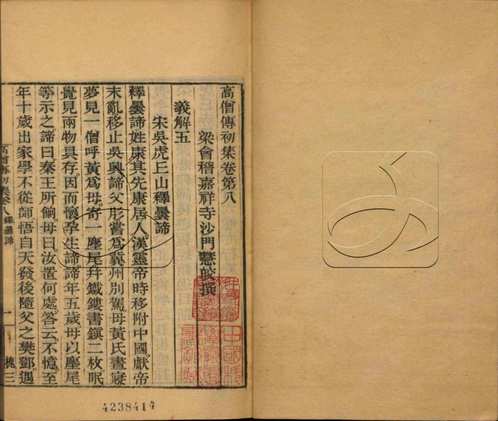 高僧傳初集卷第八
梁會稽嘉祥寺沙門慧皎撰
義解五
宋吳虎丘山釋曇諦
釋曇諦姓康其先康居人漢靈帝時移附中國獻帝
末亂移止吳興諦父肜嘗爲冀州別駕母黃氏晝寢
夢見一僧呼黃爲母寄一麈尾幷鐵鏤書鎮二枚眠
覺見兩物具存因而懷孕生諦諦年五歲母以麈尾
等示之諦曰秦王所餉母曰汝置何處答云不憶至
年十歲出家學不從師悟自天發後隨父之樊鄧遇
高僧傳初集卷八 釋曇諦
一
槐三
4238414